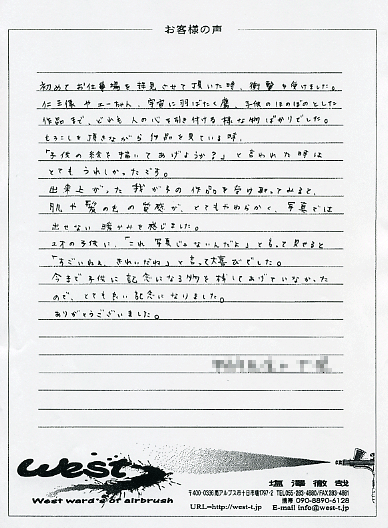 お客様の声
初めてお仕事場を拝見させて頂いた時、衝撃を受けました。
仁王像やエーちゃん、宇宙に羽ばたく鷹、子供のほのぼのとした
作品まで、どれも人の心を引き付ける様な物ばかりでした。
もろこしを頂きながら作品を見ている時、
「子供の絵を描いてあげようか?」と言われた時は
とてもうれしかったです。
出来上がった我が子の作品を受け取ってみると、
肌や髪の毛の質感が、とてもやわらかく、写真では
出せない暖かみを感じました。
2才の子供に、「これ写真じゃないんだよ」と言って見せると
「すごいねぇ、きれいだね」と言って大喜びでした。
今まで子供に記念になる物を残してあげていなかった
ので、とても良い記念になりました。
ありがとうございました。
west
West ward's of airbrush
塩澤徹哉
〒400-0306南アルプス市十日市場1797-2 TEL055-283-4880/FAX283-4881
携帯 090-8890-6128
URL=http://west-t.jp E-mail info@west-t.jp